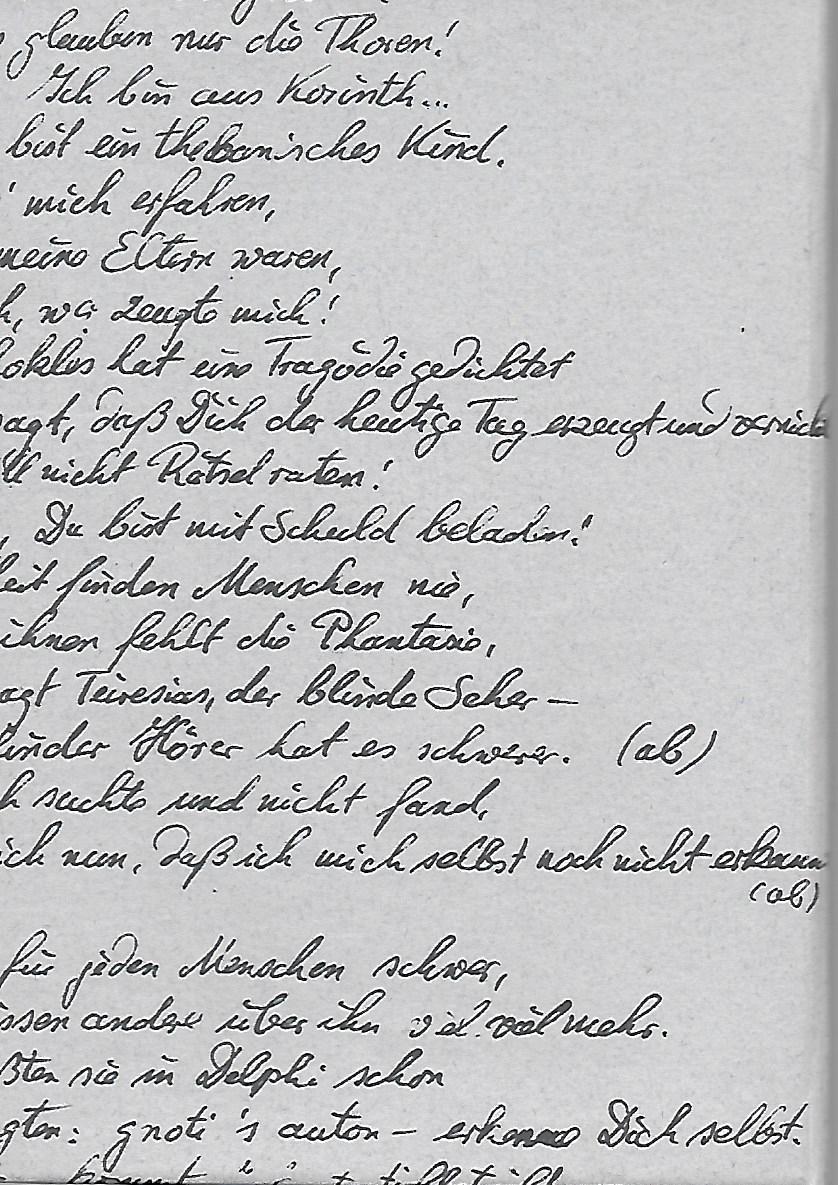 glauben nur die Thoren!
Ich bin aus Korinth...
bist ein thebanisches Kind.
mich erfahren,
meine Eltern waren,
wer zeugte mich!
okles hat eine Tragödie gedichtet
agt, daß Dich der heutige Tag erzeugt und vernich
ll nicht Rätsel raten!
Du bist mit Schuld beladen!
eit finden Menschen nie,
ihnen fehlt die Phantasie,
agt Teiresias, der blinde Seher –
linder Hörer hat es schwerer. (ab)
h suchte und nicht fand,
ich nun, daß ich mich selbst noch nicht erkann
(ab)
für jeden Menschen schwer,
issen andere über ihn viel viel mehr.
ßten sie in Delphi schon
gten: gnoti 's auton – erkenne Dich selbst.